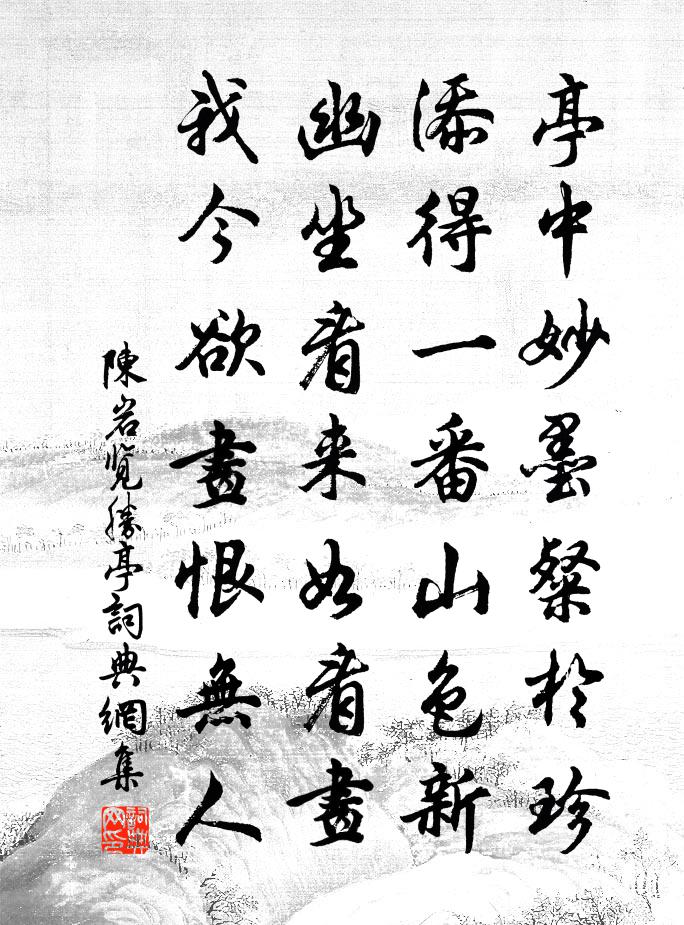 亭中妙墨粲於珍
添得一番山色新
幽坐看来如看畫
我今欲畫恨無人
陳岩覽勝亭詞典網集